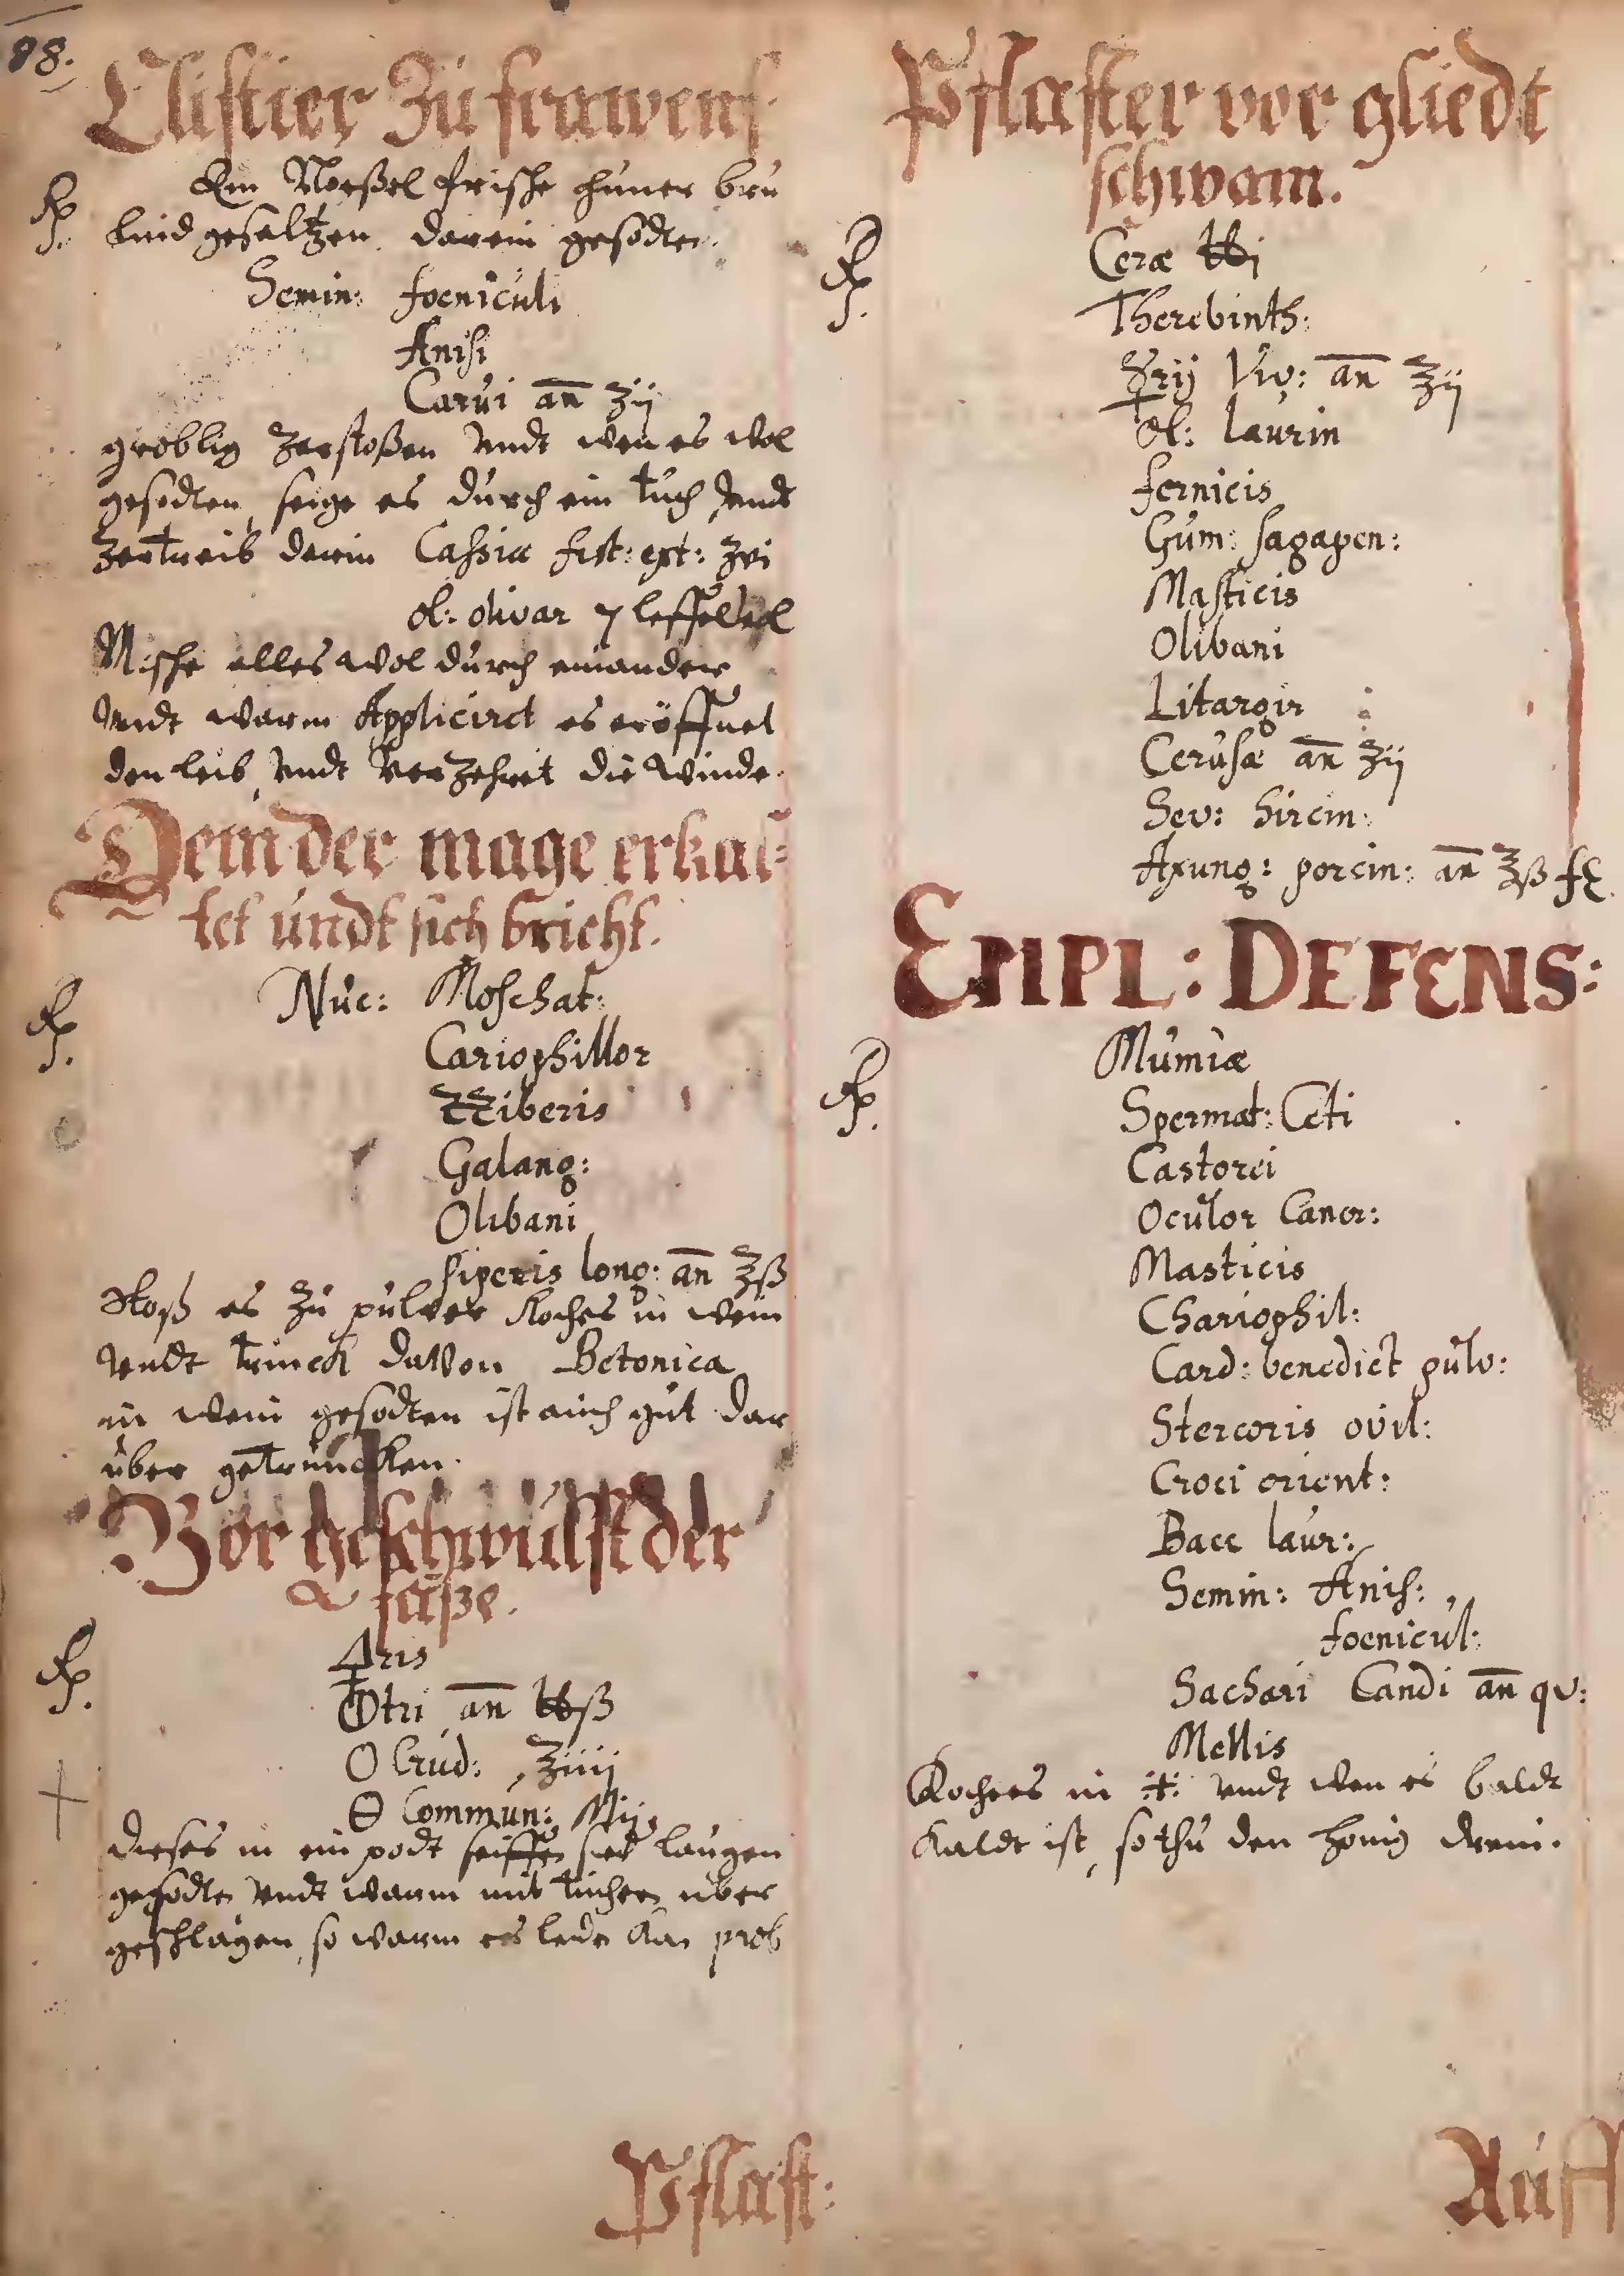 98.
Clistier Zu frawens
℞ Ein Noeßel frische hüner brü
Lind gesaltzen, darein gesodten.
Semin: foeniculi
Anisi
Carui an ʒij
gröblig zerstoßen undt wen es wol
gesodten, seige es durch ein tuch undt
zertreib darin Cassia fist: ext: ʒvi
ol: olivar 7 leffel
Mische alles wol durch einander
undt warm Applicirt es eröffnet
den leib, undt verzehret die winde.
Dem der mage erkal=
tet undt sich bricht.
℞ Nuc: Moschat:
Cariophillor
ZZiberis
Galang:
Olibani
piperis long: an ʒß
Stoß es zu pulver Koches in wein
undt trinck davon Betonica
in wein gesodten ist auch gut dar
über getruncken.
Vor geschwulst der
füße.
℞ 🜍ris
⦶tri an ℔ß
O Crud: ʒiiij
Θ Commun: Mij
dieses in ein podt seiffen sied laugen
gesodten undt warm mit tüchern über
geschlagen, so warm es leden kan prob
Pflast:
Pflaster vor gliedt
schwam.
℞ Ceræ ℔j
Therebinth:
☿rij Viv: an ʒij
ol: laurin
fernicis
Gum: sagapen:
Masticis
Olibani
Litargir
Cerusæ an ʒij
Sev: hircin:
Axung: porcin: an ʒß f
EMPL: DEFENS:
℞ Mumiæ
Spermat: Ceti
Castorei
Oculor Cancr:
Masticis
Chariophil:
Card: benedict pulv:
Stercoris ovil:
Croci orient:
Bacc laur:
Semin: Anis:
foenicul:
Sachari Candi an qv:
Mellis
Koches in ⁜ undt wen es baldt
Kaldt ist, so thu den honig drein.
Auff